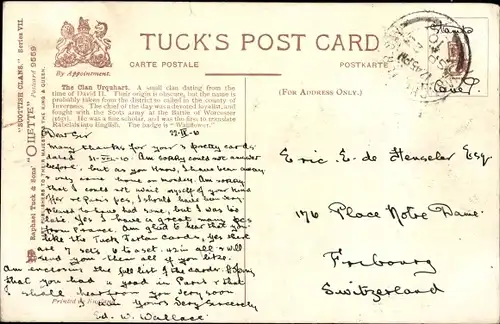 TUCK'S POST CARD
CARTE POSTALE
POSTKARTE
By Appointment.
(FOR ADDRESS ONLY.)
"SCOTTISH CLANS." Series VII.
"OILETTE" Postcard 9559
Raphael Tuck & Sons'
The Clan Urquhart. A small clan dating from the
time of David II. Their origin is obscure, but the name is
probably taken from the district so called in the county of
Cromarty. The chief of the day was a devoted loyalist, and
fought with the Scots army at the Battle of Worcester
(1651). He was a fine scholar, and was the first to translate
Rabelais into English. The badge is "Wallflower."
Dear Sir
Many thanks for your 5 pretty cards
dated 31-VIII-10. Am sorry could not answer
before, but as you know, I have been away
only came home on monday. Am sorry
that I could not avail myself of your kind
offer re paris yes, I should have been very
pleased to have had some, but I was too
late. Yes I have a great many p.cs
from France. Am glad to hear that you
like the Tuck Tartan Cards, yes there
are 7 sets 6 to a set. 42 in all & will
send you them all if you like.
Am enclosing the full list of the cards. Hoping
that you had a good in Paris & that
I shall hear from you very soon
I am Yours Very Sincerely
Ed. W. Wallace
Eric. E. de Henseler Esq
176 Place Notre Dame
Fribourg
Switzerland